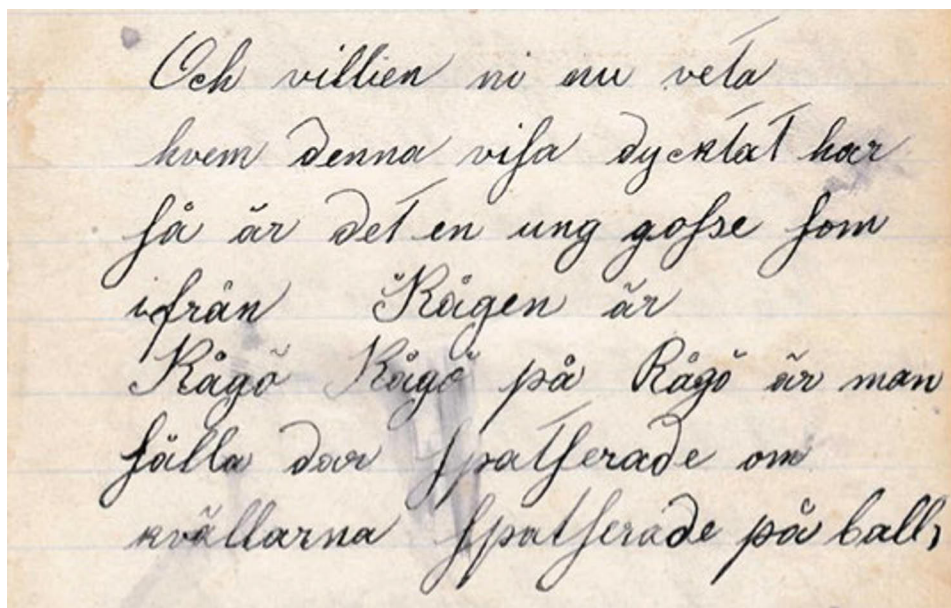 Och villien ni nu veta
hvem denna visa dycktat har
så är det en ung gosse som
ifrån Rågen är
Rågö Rågö på Rågö är man
sälla dar spatserade om
kvällarna spatserade på ball,